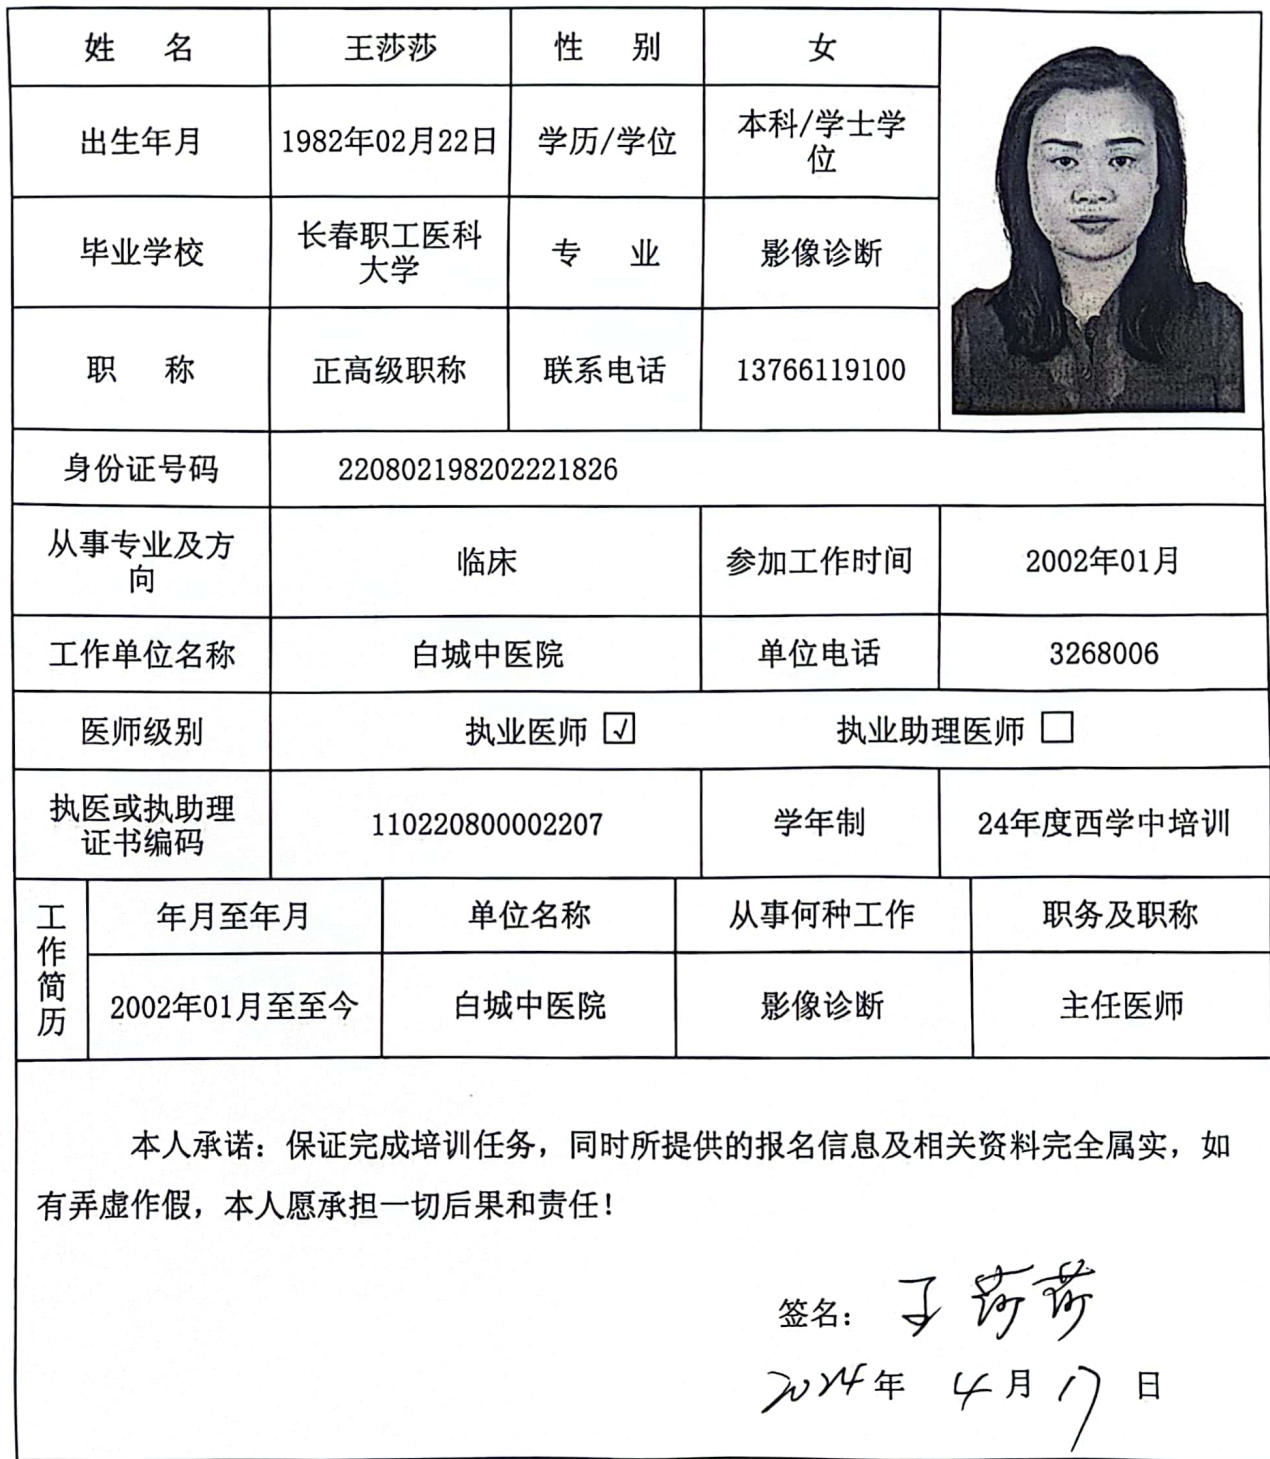 姓 名 王莎莎 性 别 女
出生年月 1982年02月22日 学历/学位 本科/学士学
位
毕业学校 长春职工医科
大学 专 业 影像诊断
职 称 正高级职称 联系电话 13766119100
身份证号码 220802198202221826
从事专业及方
向 临床 参加工作时间 2002年01月
工作单位名称 白城中医院 单位电话 3268006
医师级别 执业医师 √ 执业助理医师
执医或执助理
证书编码 110220800002207 学年制 24年度西学中培训
工作简历
年月至年月 单位名称 从事何种工作 职务及职称
2002年01月至至今 白城中医院 影像诊断 主任医师
本人承诺：保证完成培训任务，同时所提供的报名信息及相关资料完全属实，如
有弄虚作假，本人愿承担一切后果和责任！
签名： 王莎莎
2024年 4月17日